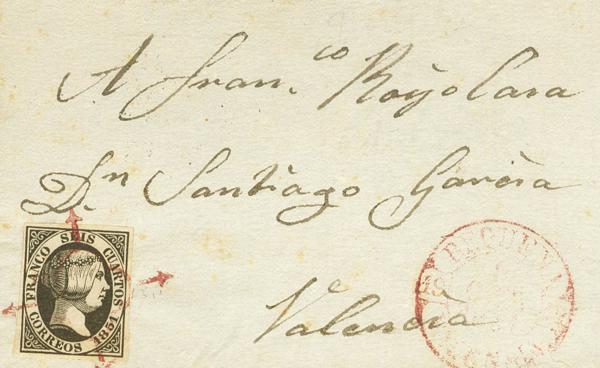 A Fran.co Royo Cara
Dn Santiago Garcia
Valencia
FRANCO SEIS CUARTOS
CORREOS 1851